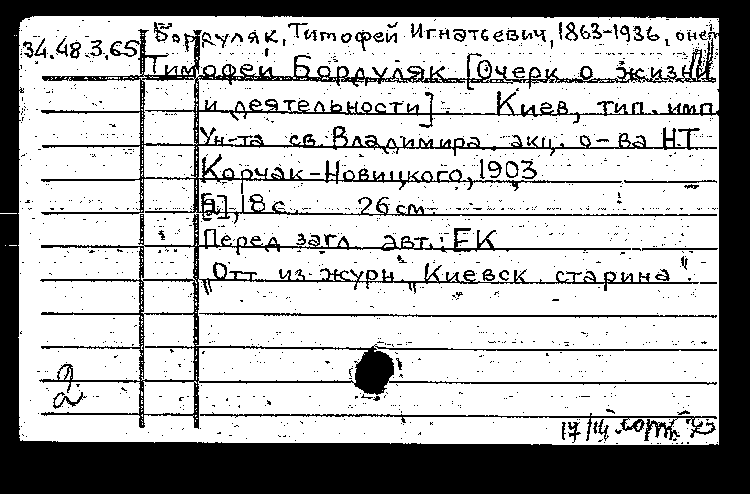 Бордуляк, Тимофей Игнатьевич, 1863-1936, о нем
34.48.3.65
Тимофей Бордуляк [Очерк о жизни
и деятельности]. Киев, тип. имп.
Ун-та св. Владимира. акц. о-ва Н.Т
Корчак-Новицкого, 1903
18 с. 26 см.
Перед загл. авт.: ЕК
„Отт. из журн. „Киевск. старина".
2